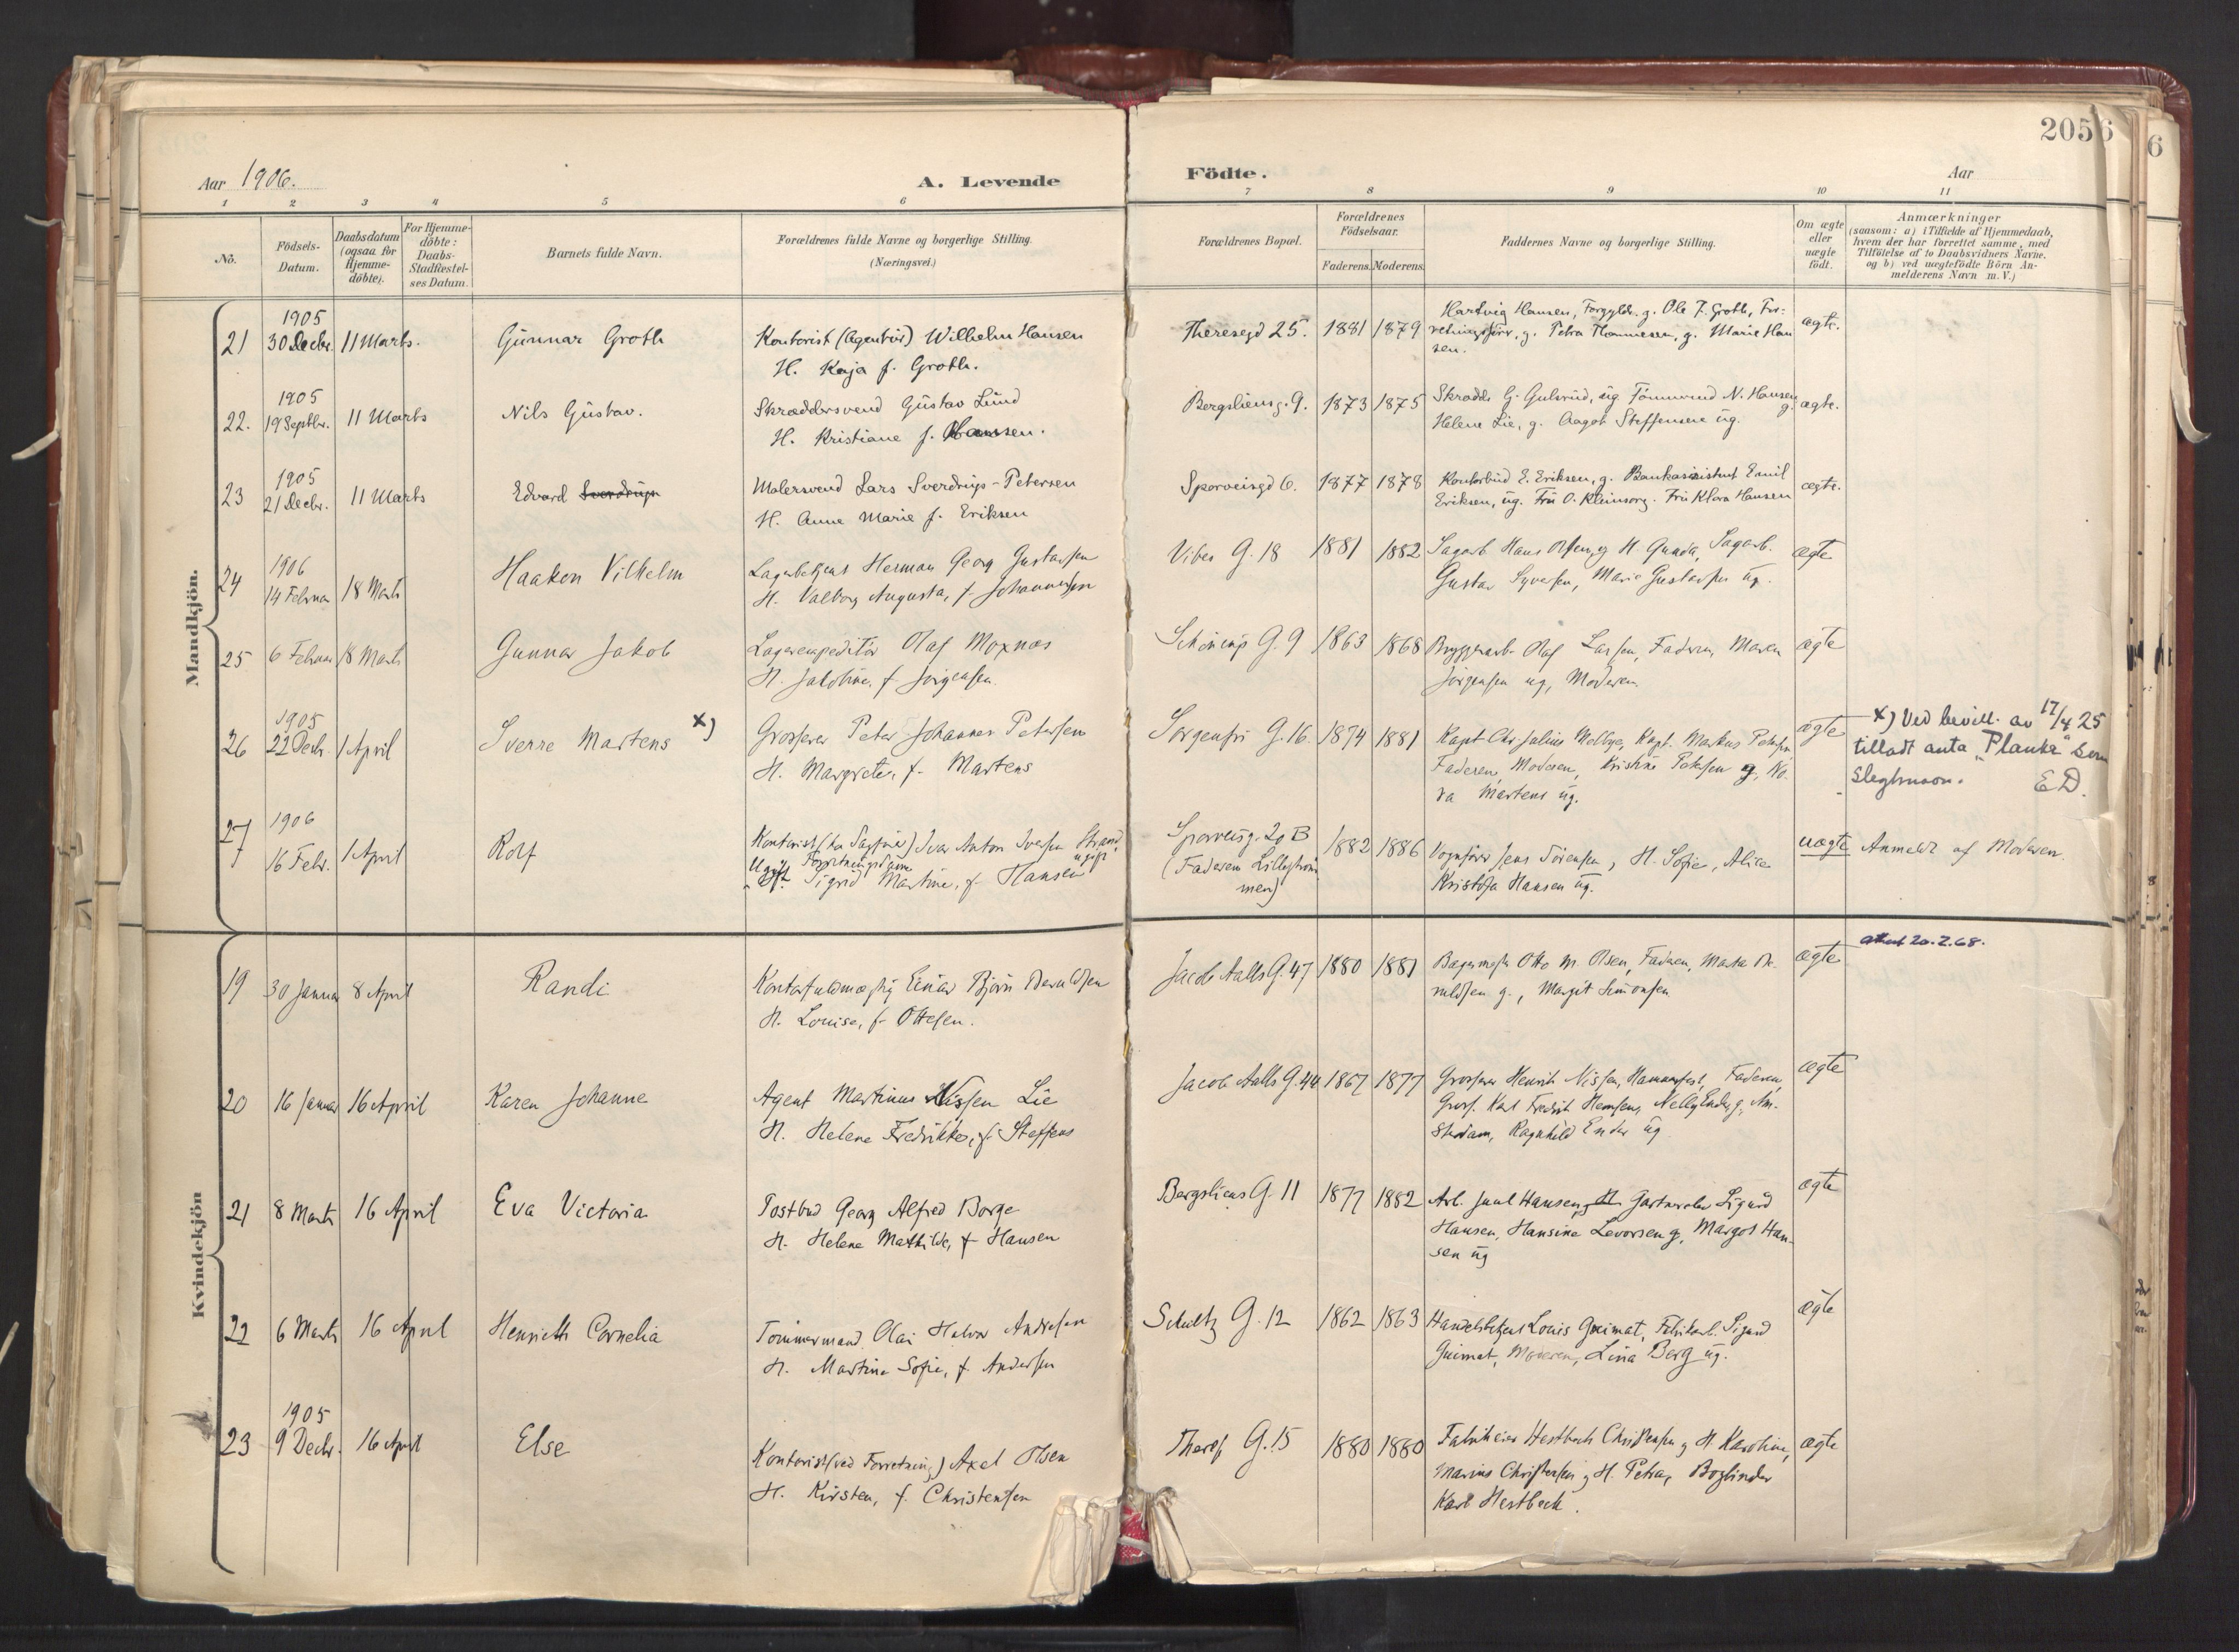 2056
6
Aar 1906.
A. Levende
Födte.
Aar
1 2 3 4 5 6 7 8 9 10 11
No.
Födsels-
Datum.
Daabsdatum
(ogsaa for
Hjemme-
döbte).
For Hjemme-
döbte:
Daabs-
Stadfestel-
ses Datum.
Barnets fulde Navn.
Forældrenes fulde Navne og borgerlige Stilling.
(Næringsvei.)
Forældrenes Bopæl.
Forældrenes
Födselsaar.
Faderens. Moderens.
Faddernes Navne og borgerlige Stilling.
Om ægte
eller
uægte
födt.
Anmærkninger
(saasom: a) i Tilfælde af Hjemmedaab,
hvem der har forrettet samme, med
Tilföielse af to Daabsvidners Navne.
og b) ved uægtefödte Börn An-
melderens Navn m. V.)
Mandkjön.
21
1905
30 Decbr.
11 Marts.
Gunnar Groth
Kontorist (Agentur) Wilhelm Hansen
H. Kaja f. Groth.
Theresegd 25.
1881
1879
Hartvig Hansen, Forgylder. g. Ole F. Groth, For-
retningsförer, g. Petra Thommesen, g. Marie Han
sen.
ægte.
22.
1905
19 Septbr.
11 Marts
Nils Gustav.
Skræddersvend Gustav Lund
H. Kristiane f. Hansen.
Bergsliensg. 9.
1873
1875
Skrædder G. Gulsrud, ug Tömmermd N. Hansen g.
Helene Lie, g. Aagot Steffensen ug.
ægte.
23
1905
21 Decbr.
11 Marts
Edvard Sverdrup
Malersvend Lars Sverdrup-Petersen
H. Anne Marie f. Eriksen
Sporveisgd 6.
1877
1878
Kontorbud E. Eriksen, g. Bankassistent Emil
Eriksen, ug. Fru O. Kleinsorg. Fru Klara Hansen
ægte.
24
1906
14 Februar
18 Marts
Haakon Vilhelm
Lagerbetjent Herman Georg Gustavsen
H. Valborg Augusta, f. Johannessen
Vibes G. 18
1881
1882
Sagarb Hans Olsen og H. Gunda, Sagarb.
Gustav Syversen, Marie Gustavsen ug.
ægte
25
6 Februar
18 Marts
Gunnar Jakob
Lagerexpeditör Olaf Moxnæs
H. Jakobine, f. Jörgensen
Schönings G. 9
1863
1868
Bryggearb. Olaf Larsen, Faderen, Maren
Jörgensen ug, Moderen
ægte
26
1905
22 Decbr.
1 April
Sverre Martens x)
Grosserer Peter Johannes Petersen
H. Margrete, f. Martens
Sorgenfri G. 16.
1874
1881
Kapt Chr. Julius Melbye, Kapt. Markus Petersen
Faderen, Moderen, Kristine Petersen g, No-
ra Martens ug.
ægte
x) Ved bevill. av 17/4 25
tilladt anta "Planke" som
slegtsnavn. ED.
27
1906
16 Febr.
1 April
Rolf
Kontorist (hos Sagförer) Ivar Anton Iversen Strand, ugift
Ugift Forretningsdame
Sigrid Martine, f. Hansen
Sporveisg. 20 B
(Faderen Lilleström
men)
1882
1886
Vognförer Jens Sörensen, H. Sofie, Alice
Kristofa Hansen ug.
uægte
Anmeldt af Moderen.
Kvindekjön
19
30 Januar
8 April
Randi
Kontorfuldmægtig Einar Björn Beruldsen
H. Louise, f. Ottesen.
Jacob Aalls G. 47
1880
1881
Bagermester Otto M. Olsen, Faderen, Marta Be-
ruldsen g., Margit Simonsen
ægte
attest 20.2.68.
20
16 Januar
16 April
Karen Johanne
Agent Martinus Nissen Lie
H. Helene Fredrikke, f. Steffens
Jacob Aalls G. 44
1867
1877
Grosserer Henrik Nissen, Hammerfest, Faderen,
Gross. Karl Fredrik Hemsen, Nelly Ender g, Am-
sterdam, Ragnhild Ender ug
ægte
21
8 Marts
16 April
Eva Victoria
Postbud Georg Alfred Borge
H. Helene Mathilde, f. Hansen
Bergsliens G. 11
1877
1882
Arb. Juul Hansen, Gartnerelev Sigurd
Hansen, Hansine Levorsen g, Margot Han-
sen ug
ægte
22
6 Marts
16 April
Henriette Cornelia
Tömmermand Olai Halvor Andresen
H. Martine Sofie, f. Andersen
Schultz G. 12
1862
1863
Handelsbetjent Louis Guimat, Fabrikarb. Sigurd
Guimat, Moderen, Lina Berg ug.
ægte
23
1905
9 Decbr.
16 April
Else
Kontorist (ved Forretning) Axel Olsen
H. Kirsten, f. Christensen
Theres G. 15
1880
1880
Fabrikeier Hestbech Christensen og H. Karoline,
Marius Christensen og H. Petra, Bogbinder
Karl Hestbech.
ægte